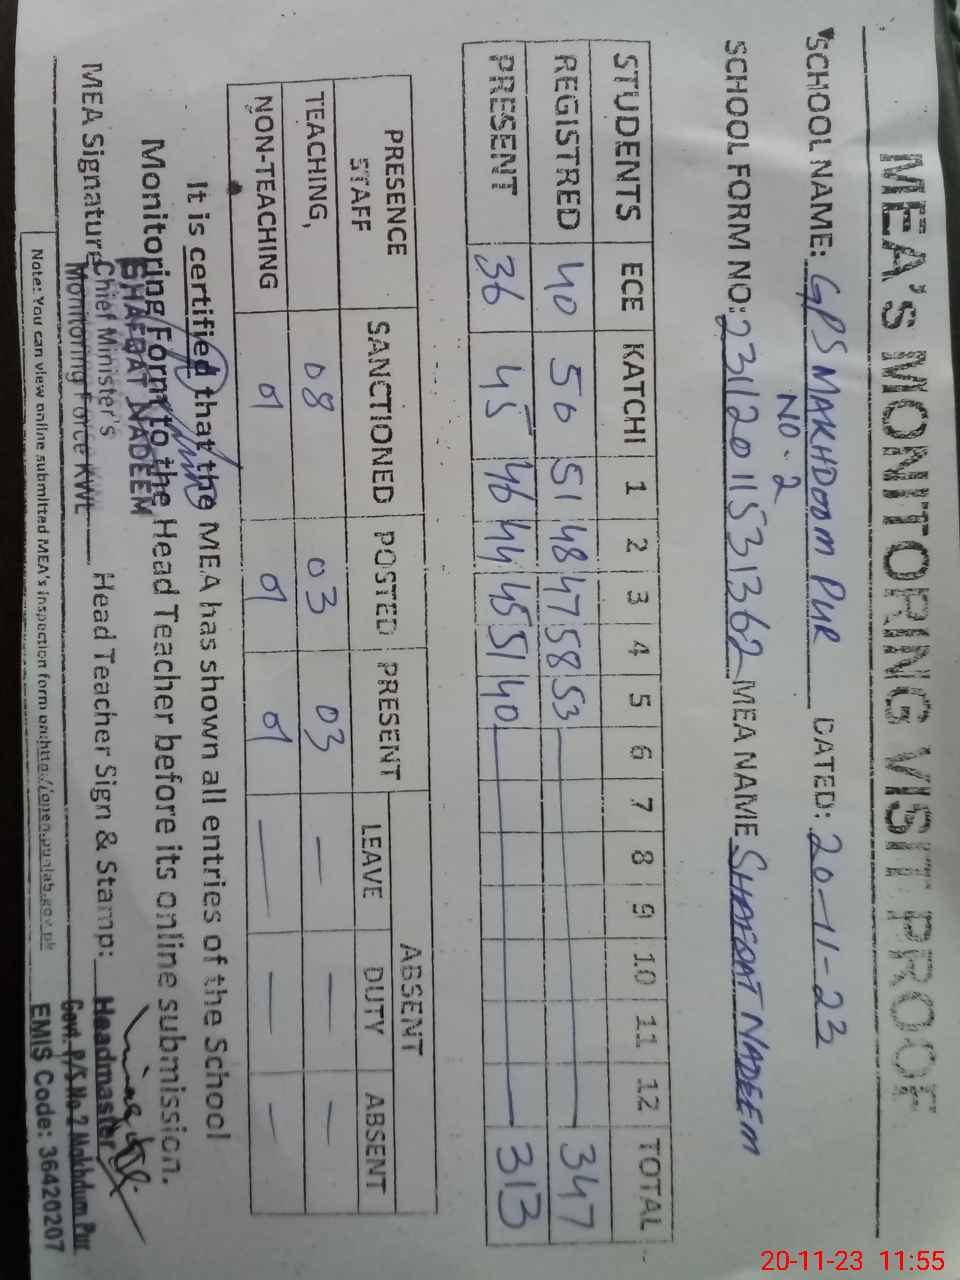 MEA's MONITORING VISIT PROOF
SCHOOL NAME: GPS MAKHDOOM PUR DATED: 20-11-23
NO-2
SCHOOL FORM NO: 23112011531362 MEA NAME SHAFQAT NADEEM
STUDENTS ECE KATCHI 1 2 3 4 5 6 7 8 9 10 11 12 TOTAL
REGISTRED 40 50 51 48 47 58 53 347
PRESENT 36 45 46 44 45 51 40 313
PRESENCE STAFF SANCTIONED POSTED PRESENT ABSENT
LEAVE DUTY ABSENT
TEACHING, 08 03 03 — — —
NON-TEACHING 01 01 01 — — —
It is certified that the MEA has shown all entries of the School
Monitoring Form to the Head Teacher before its online submission.
SHAFQAT NADEEM
MEA Signature Head Teacher Sign & Stamp:
Chief Minister's
Monitoring Force KWL
Headmaster
Govt. P/S No 2 Makhdum Pur
EMIS Code: 36420207
Note: You can view online submitted MEA's inspection form on:http://open.punjab.gov.pk
20-11-23 11:55